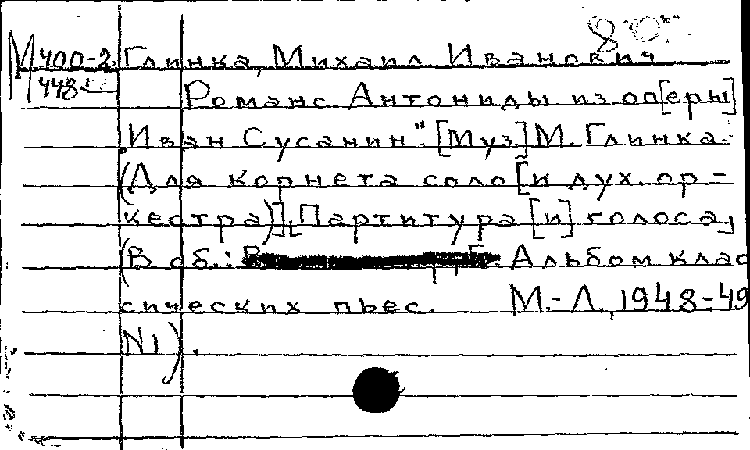 М 400-2 Глинка, Михаил Иванович
448
Романс Антониды из оп[еры]
"Иван Сусанин". [Муз] М. Глинка.
(Для корнета соло [и дух. ор-
кестра)]. Партитура [и] голоса,
(В об.: Альбом клас
сических пьес. М.-Л., 1948-49
N1).